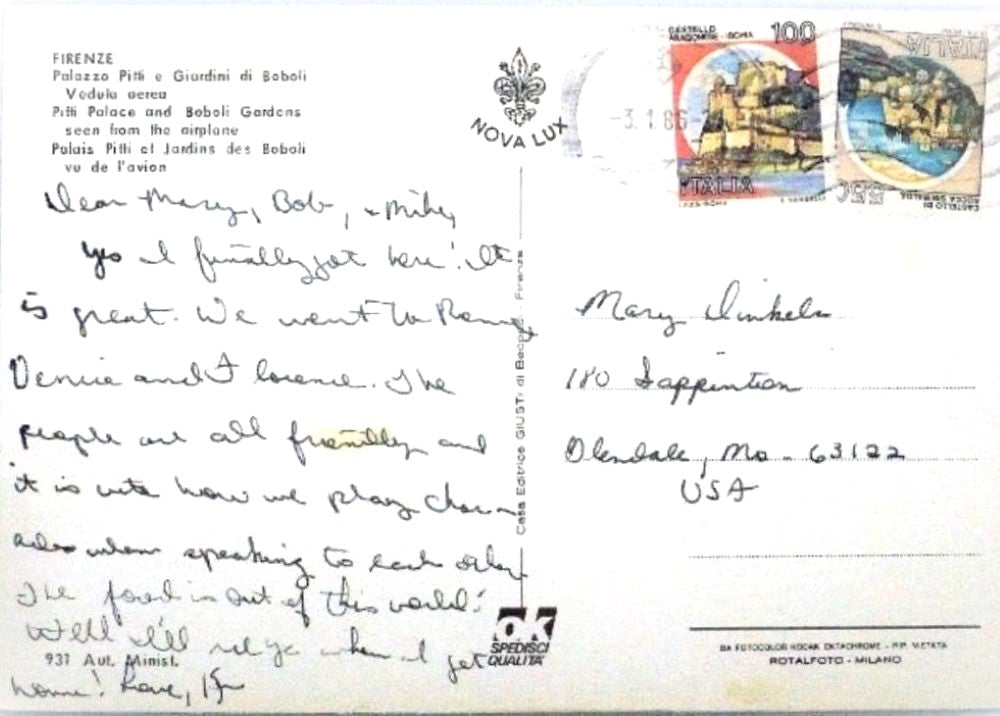 FIRENZE
Palazzo Pitti e Giardini di Boboli
Veduta aerea
Pitti Palace and Boboli Gardens
seen from the airplane
Palais Pitti et Jardins des Boboli
vu de l'avion
Dear Mary, Bob, + Mike,
Yes I finally got here! It
is great. We went to Rome,
Venice and Florence. The
people are all friendly and
it is cute how we play char-
ades when speaking to each other
The food is out of this world!
Well I'll see ya when I get
home! Love,
931 Aut. Minist.
NOVA LUX
Casa Editrice GIUSTI di Becocci - Firenze
OK
SPEDISCI
QUALITA'
CASTELLO
ARAGONESE - ISCHIA
100
ITALIA
-3.1.86
ITALIA
550
CASTELLO DI
ROCCA SINIBALDA
Mary
180 Sappington
Glendale, Mo - 63122
USA
DA FOTOCOLOR KODAK EKTACHROME - RIP. VIETATA
ROTALFOTO - MILANO